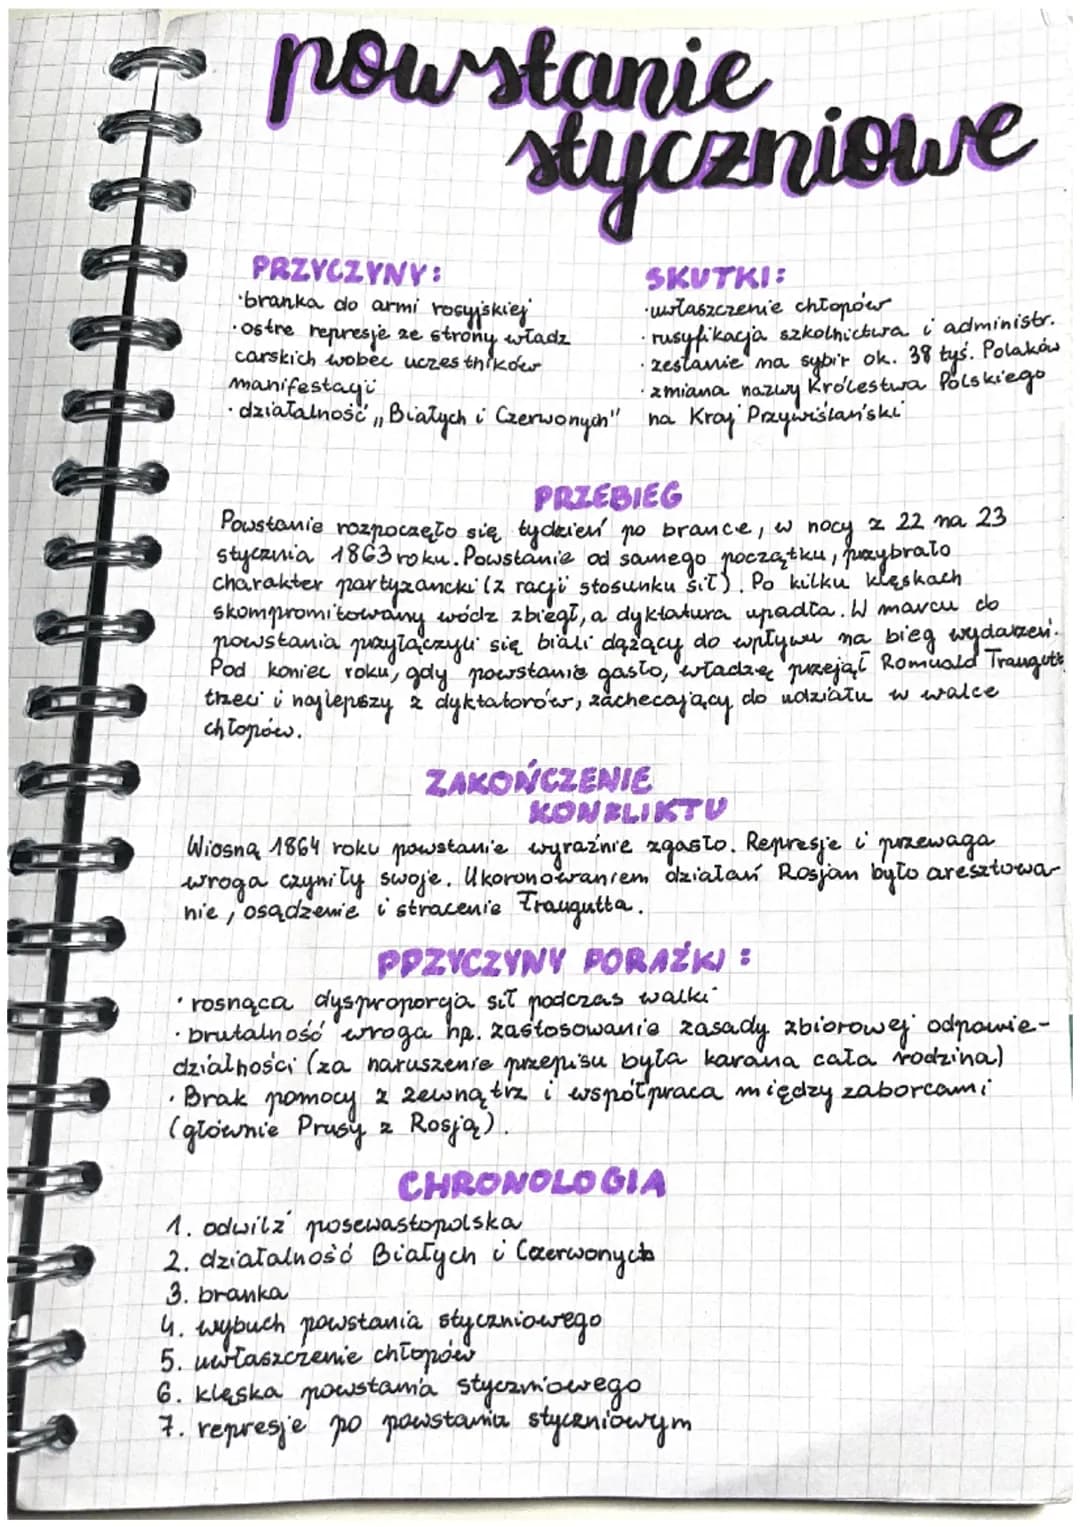 powstanie
styczniowe
PRZYCZYNY:
·branka do armi rosyjskiej
·ostre represje ze strony władz
carskich wobec uczestników
manifestacji
·działalność „Białych i Czerwonych"
SKUTKI:
·uwłaszczenie chłopów
·rusyfikacja szkolnictwa i administr.
·zesłanie na sybir ok. 38 tyś. Polaków
·zmiana nazwy Królestwa Polskiego
na Kraj Przywiślański
PRZEBIEG
Powstanie rozpoczęło się tydzień po brance, w nocy z 22 na 23
stycznia 1863 roku. Powstanie od samego początku, przybrało
charakter partyzancki (z racji stosunku sił). Po kilku klęskach
skompromitowany wódz zbiegł, a dyktatura upadła. W marcu do
powstania przyłączyli się biali dążący do wpływu na bieg wydarzeń.
Pod koniec roku, gdy powstanie gasło, władzę przejął Romuald Traugutt
trzeci i najlepszy z dyktatorów, zachecający do udziału w walce
chłopów.
ZAKOŃCZENIE
KONFLIKTU
Wiosną 1864 roku powstanie wyraźnie zgasło. Represje i przewaga
wroga czyniły swoje. Ukoronowaniem działań Rosjan było aresztowa-
nie, osądzenie i stracenie Traugutta.
PRZYCZYNY PORAŻKI:
·rosnąca dysproporcja sił podczas walki
·brutalność wroga np. zastosowanie zasady zbiorowej odpowie-
dzialności (za naruszenie przepisu była karana cała rodzina)
·Brak pomocy z zewnątrz i współpraca między zaborcami
(głównie Prusy z Rosją).
CHRONOLOGIA
1. odwilż posewastopolska
2. działalność Białych i Czerwonych
3. branka
4. wybuch powstania styczniowego
5. uwłaszczenie chłopów
6. klęska powstania styczniowego
7. represje po powstaniu styczniowym